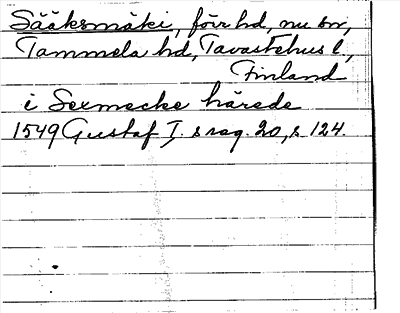 Sääksmäki, förr hd, nu sn,
Tammela hd, Tavastehus l,
Finland
i Sexmecke härede
1549 Gustaf I. s rag. 20, s 124.